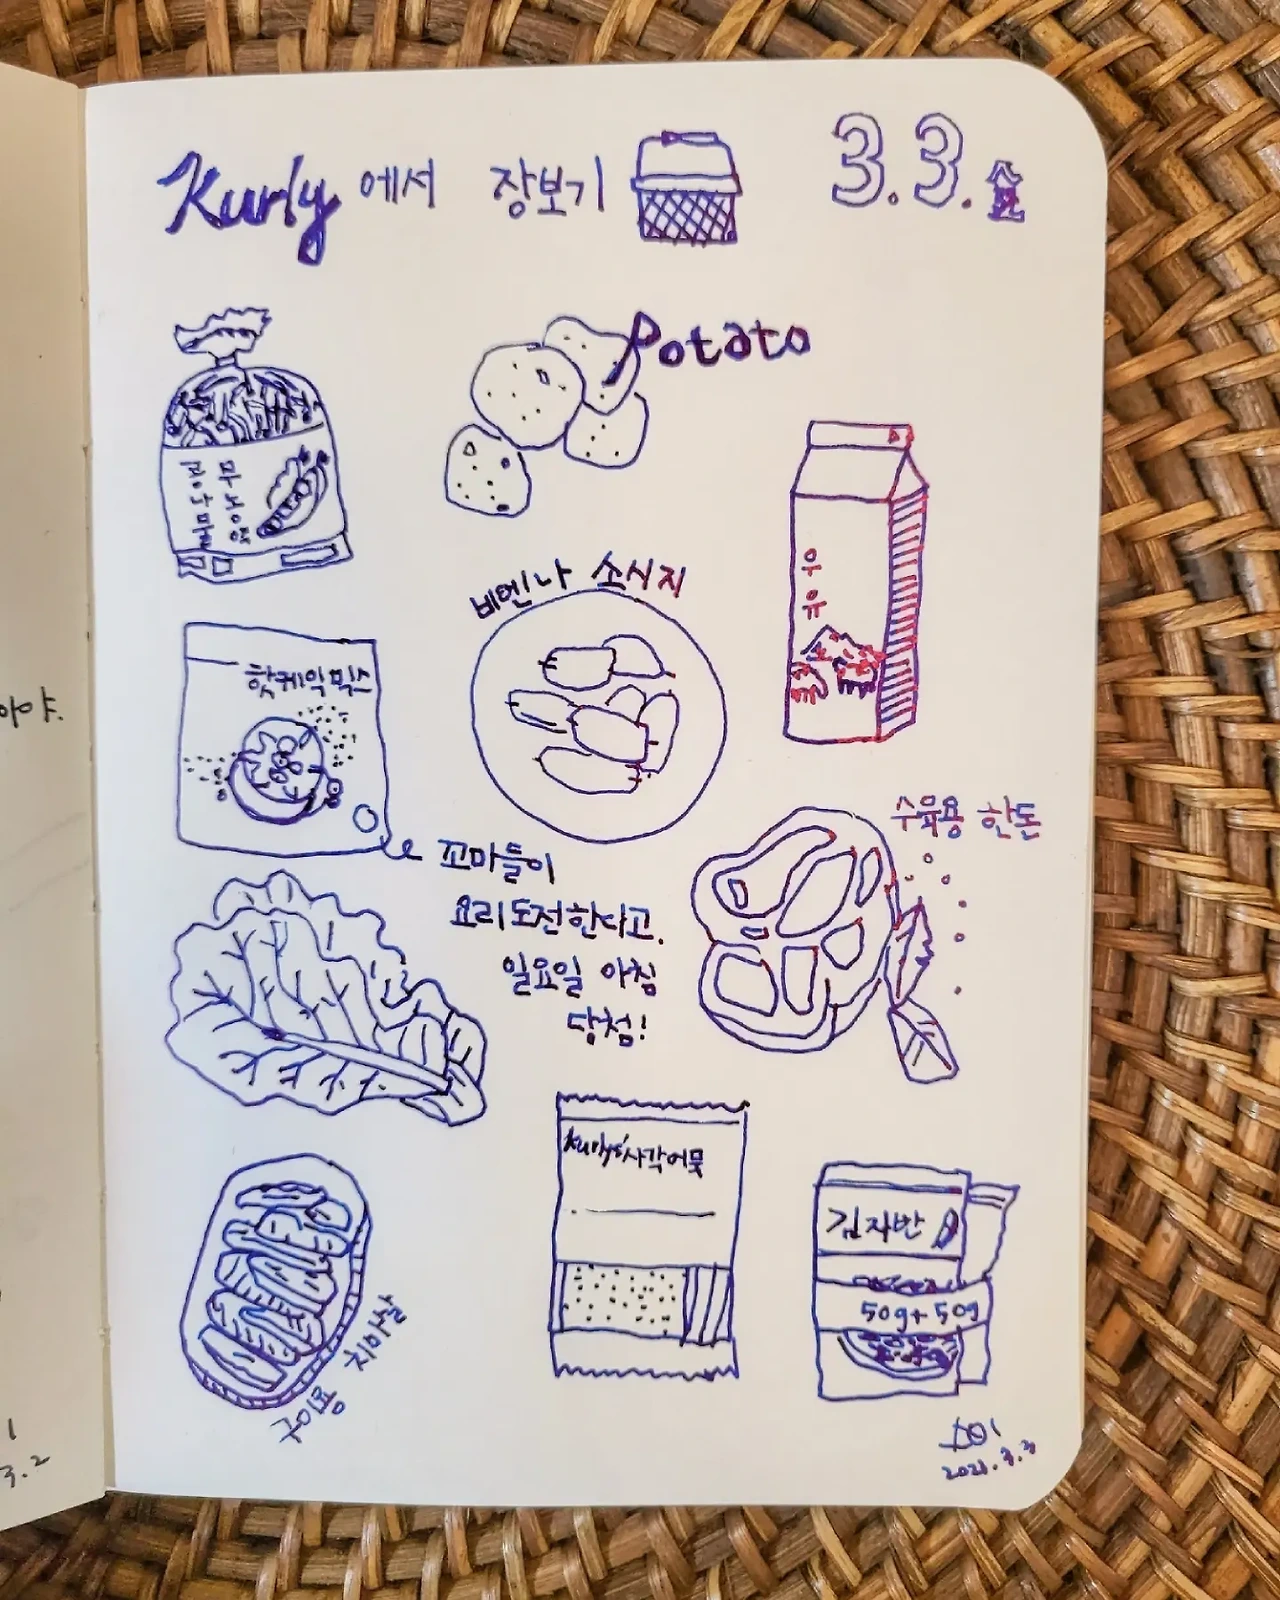 Kurly에서 장보기
3.3.
Potato
무농약
콩나물
우유
비엔나 소시지
핫케익믹스
수육용 한돈
꼬마들이
요리도전한다고.
일요일 아침
당첨!
Kurly's 사각어묵
김자반
50g+50g
구이용 치마살
DOI
2021.3.3
아야.
3.2